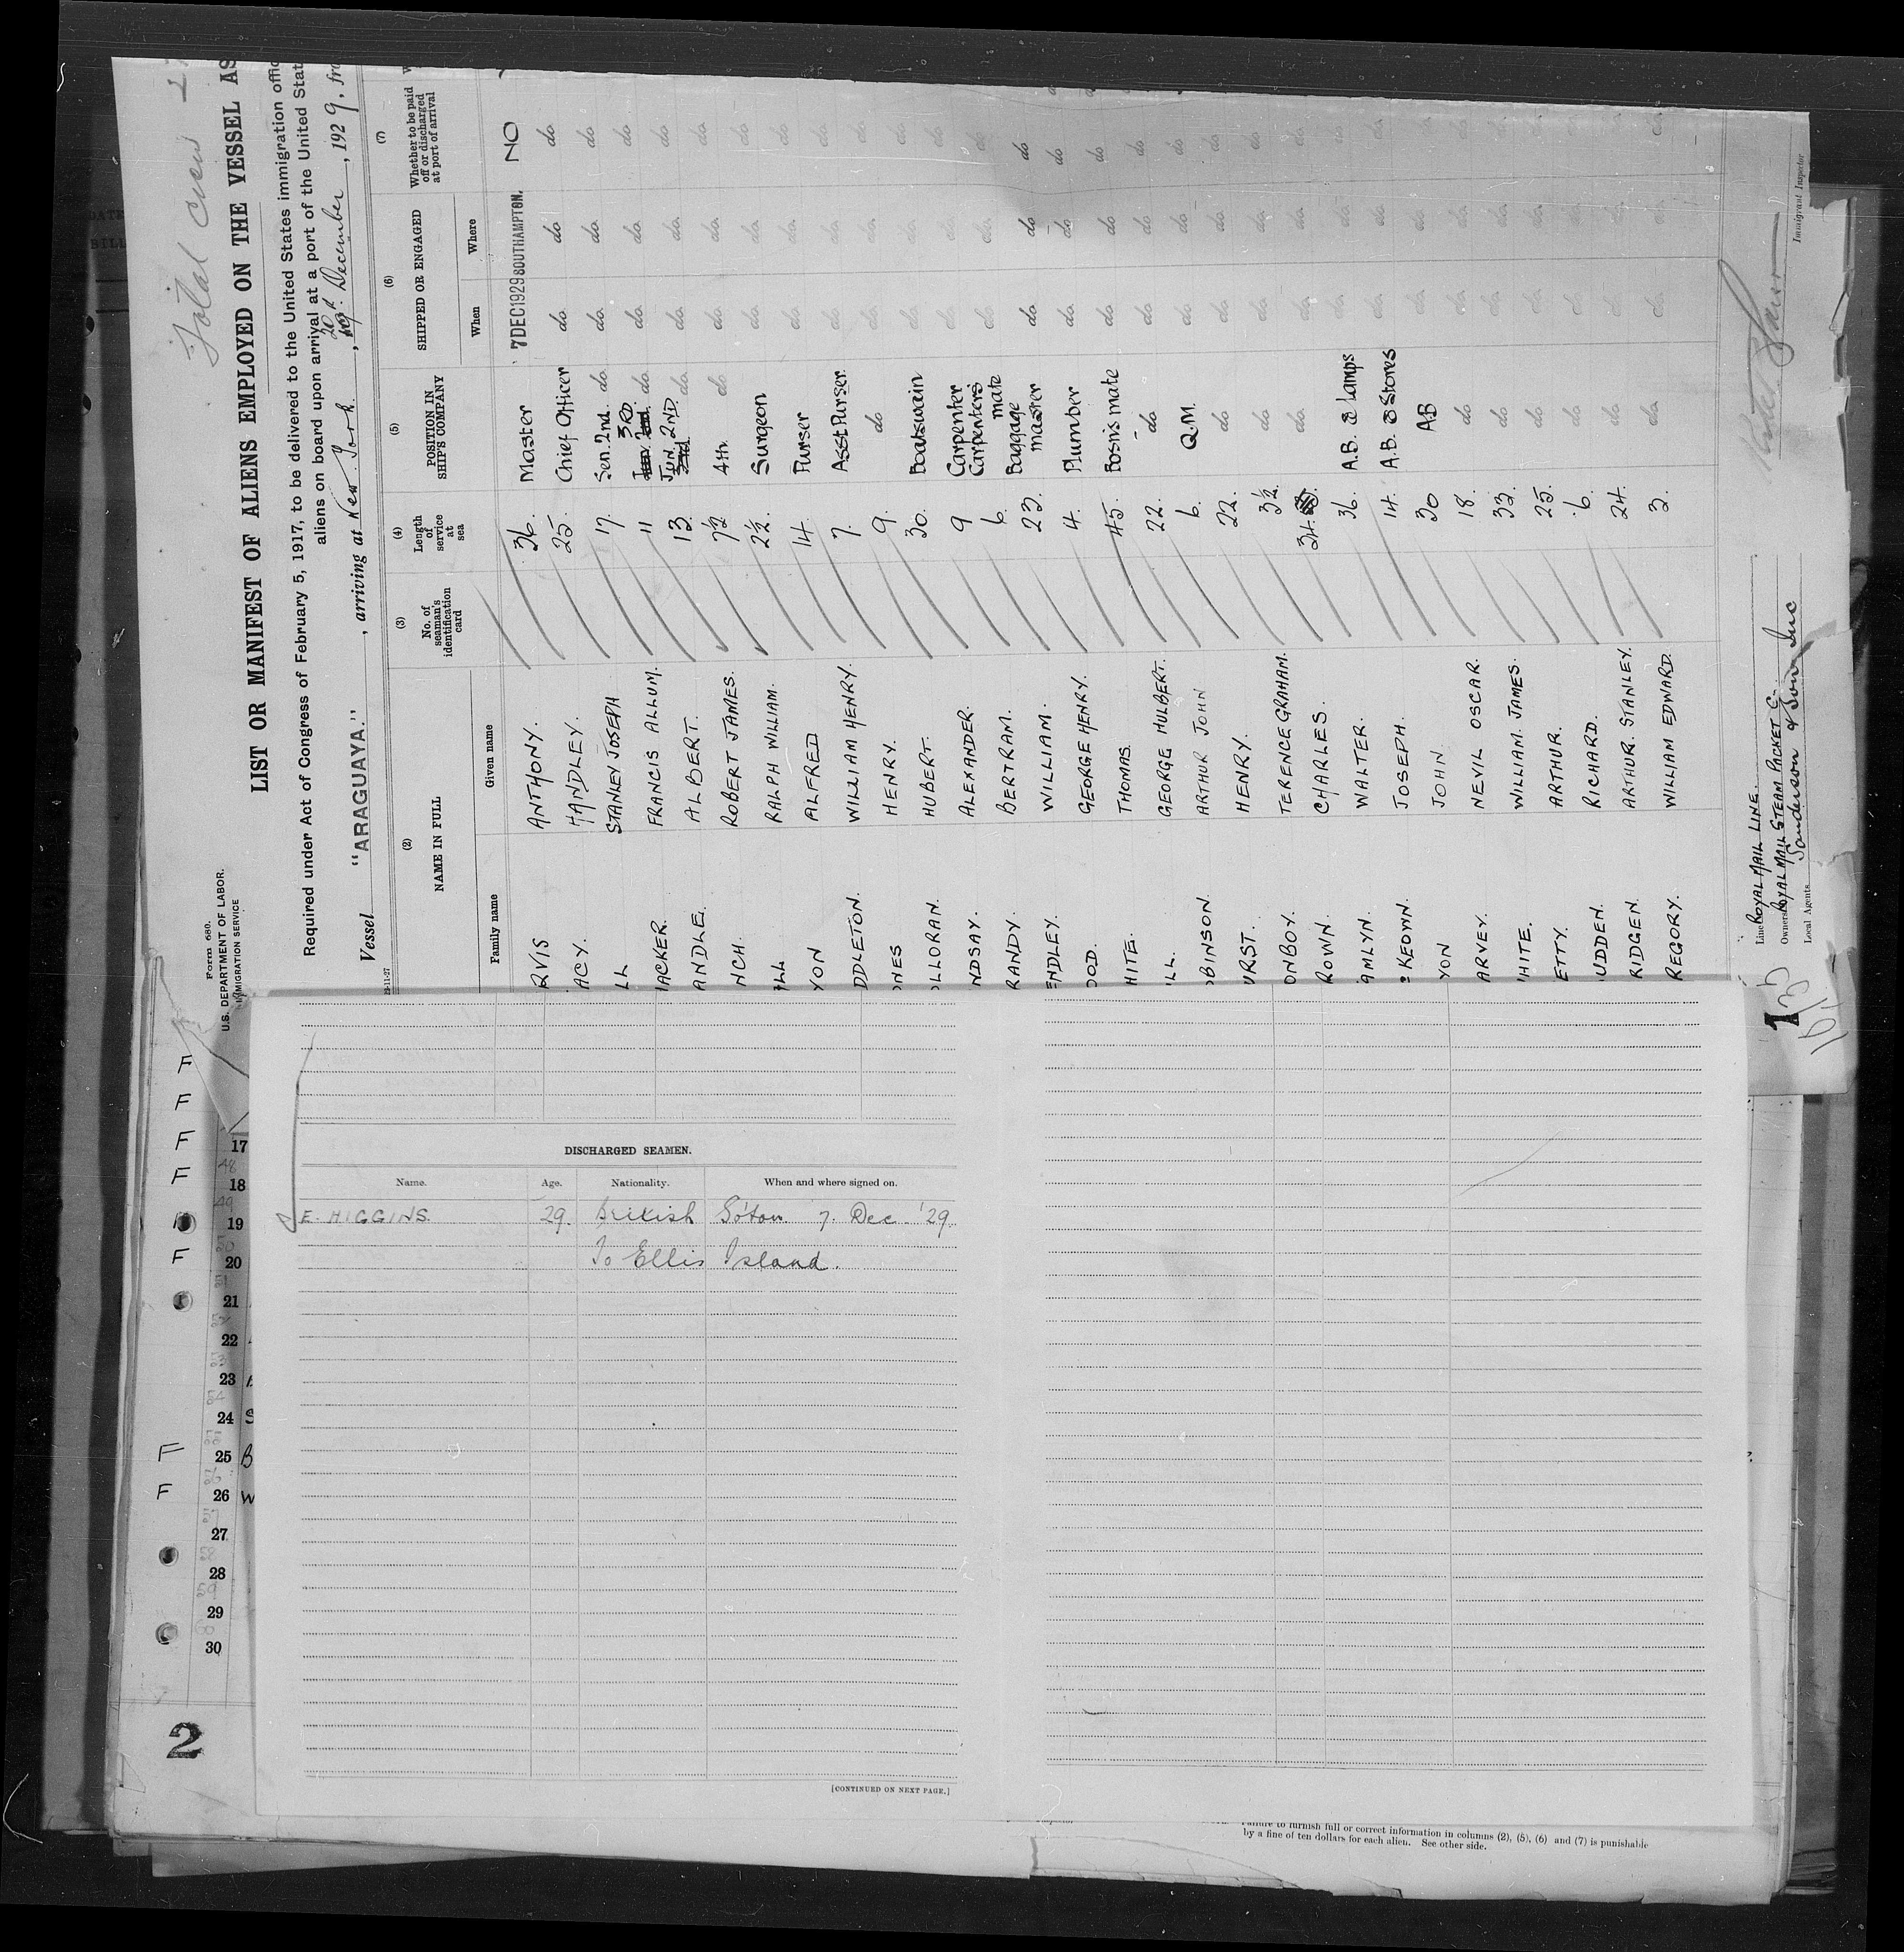 Total Crew
Form 680.
U.S. DEPARTMENT OF LABOR.
IMMIGRATION SERVICE
LIST OR MANIFEST OF ALIENS EMPLOYED ON THE VESSEL AS
Required under Act of Congress of February 5, 1917, to be delivered to the United States immigration
aliens on board upon arrival at a port of the United
Vessel "ARAGUAYA.", arriving at New York, 20th December, 1929, fro
(2) NAME IN FULL
Family name Given name
(3) No. of seaman's identification card
(4) Length of service at sea
(5) POSITION IN SHIP'S COMPANY
(6) SHIPPED OR ENGAGED
When Where
(7) Whether to be paid off or discharged at port of arrival
RVIS ANTHONY. 36. Master 7 DEC 1929 SOUTHAMPTON. NO
ACY. HANDLEY. 25. Chief Officer do do do
LL STANLEY JOSEPH 17. Sen. 2nd. do do. do. do
ACKER. FRANCIS ALLUM. 11 3RD do do. do. do
ANDLE. ALBERT. 13. Jun. 2ND. do do. do. do
NCH. ROBERT JAMES. 7½ 4th. do do. do. do
LL RALPH WILLIAM. 2½. Surgeon do. do. do
YON ALFRED 14. Purser do. do. do
DDLETON. WILLIAM HENRY. 7. Asst Purser. do. do. do
NES HENRY. 9. do do. do. do
LLORAN. HUBERT. 30. Boatswain do. do. do
NDSAY. ALEXANDER. 9 Carpenter do. do. do
RANDY. BERTRAM. 6. Carpenter's mate do. do. do
ENDLEY. WILLIAM. 23. Baggage master do do do
OOD. GEORGE HENRY. 4. Plumber do. do. do
HITE. THOMAS. 45. Bosn's mate do. do do
LL. GEORGE HULBERT. 22. do do. do. do
OBINSON. ARTHUR JOHN 6. Q.M. do. do. do
URST. HENRY. 22. do do. do. do
ONBOY. TERENCE GRAHAM. 3½. do do. do. do
ROWN. CHARLES. 34. do do. do. do
AMLYN. WALTER. 36. A.B. & Lamps do. do. do
KEOWN. JOSEPH. 14. A.B. & Stores do. do. do
YON JOHN 30 AB do. do. do
ARVEY. NEVIL OSCAR. 18. do do. do. do
HITE. WILLIAM. JAMES. 33. do do. do. do
ETTY. ARTHUR. 25. do do. do. do
UDDEN. RICHARD. 6. do do. do. do
RIDGEN. ARTHUR. STANLEY. 24. do do. do. do
REGORY. WILLIAM EDWARD. 3. do do. do. do
Line ROYAL MAIL LINE.
Owners ROYAL MAIL STEAM PACKET Co.
Local Agents Sanderson & Son Inc
Immigrant Inspector
F
F
F 17
F 18
19
F 20
21
22
23
24 S
F 25 B
F 26 W
27
28
29
30
2
DISCHARGED SEAMEN.
Name. Age. Nationality. When and where signed on.
E. HIGGINS. 29. British So'ton. 7. Dec. '29.
To Ellis Island.
[CONTINUED ON NEXT PAGE.]
Failure to furnish full or correct information in columns (2), (5), (6) and (7) is punishable
by a fine of ten dollars for each alien. See other side.